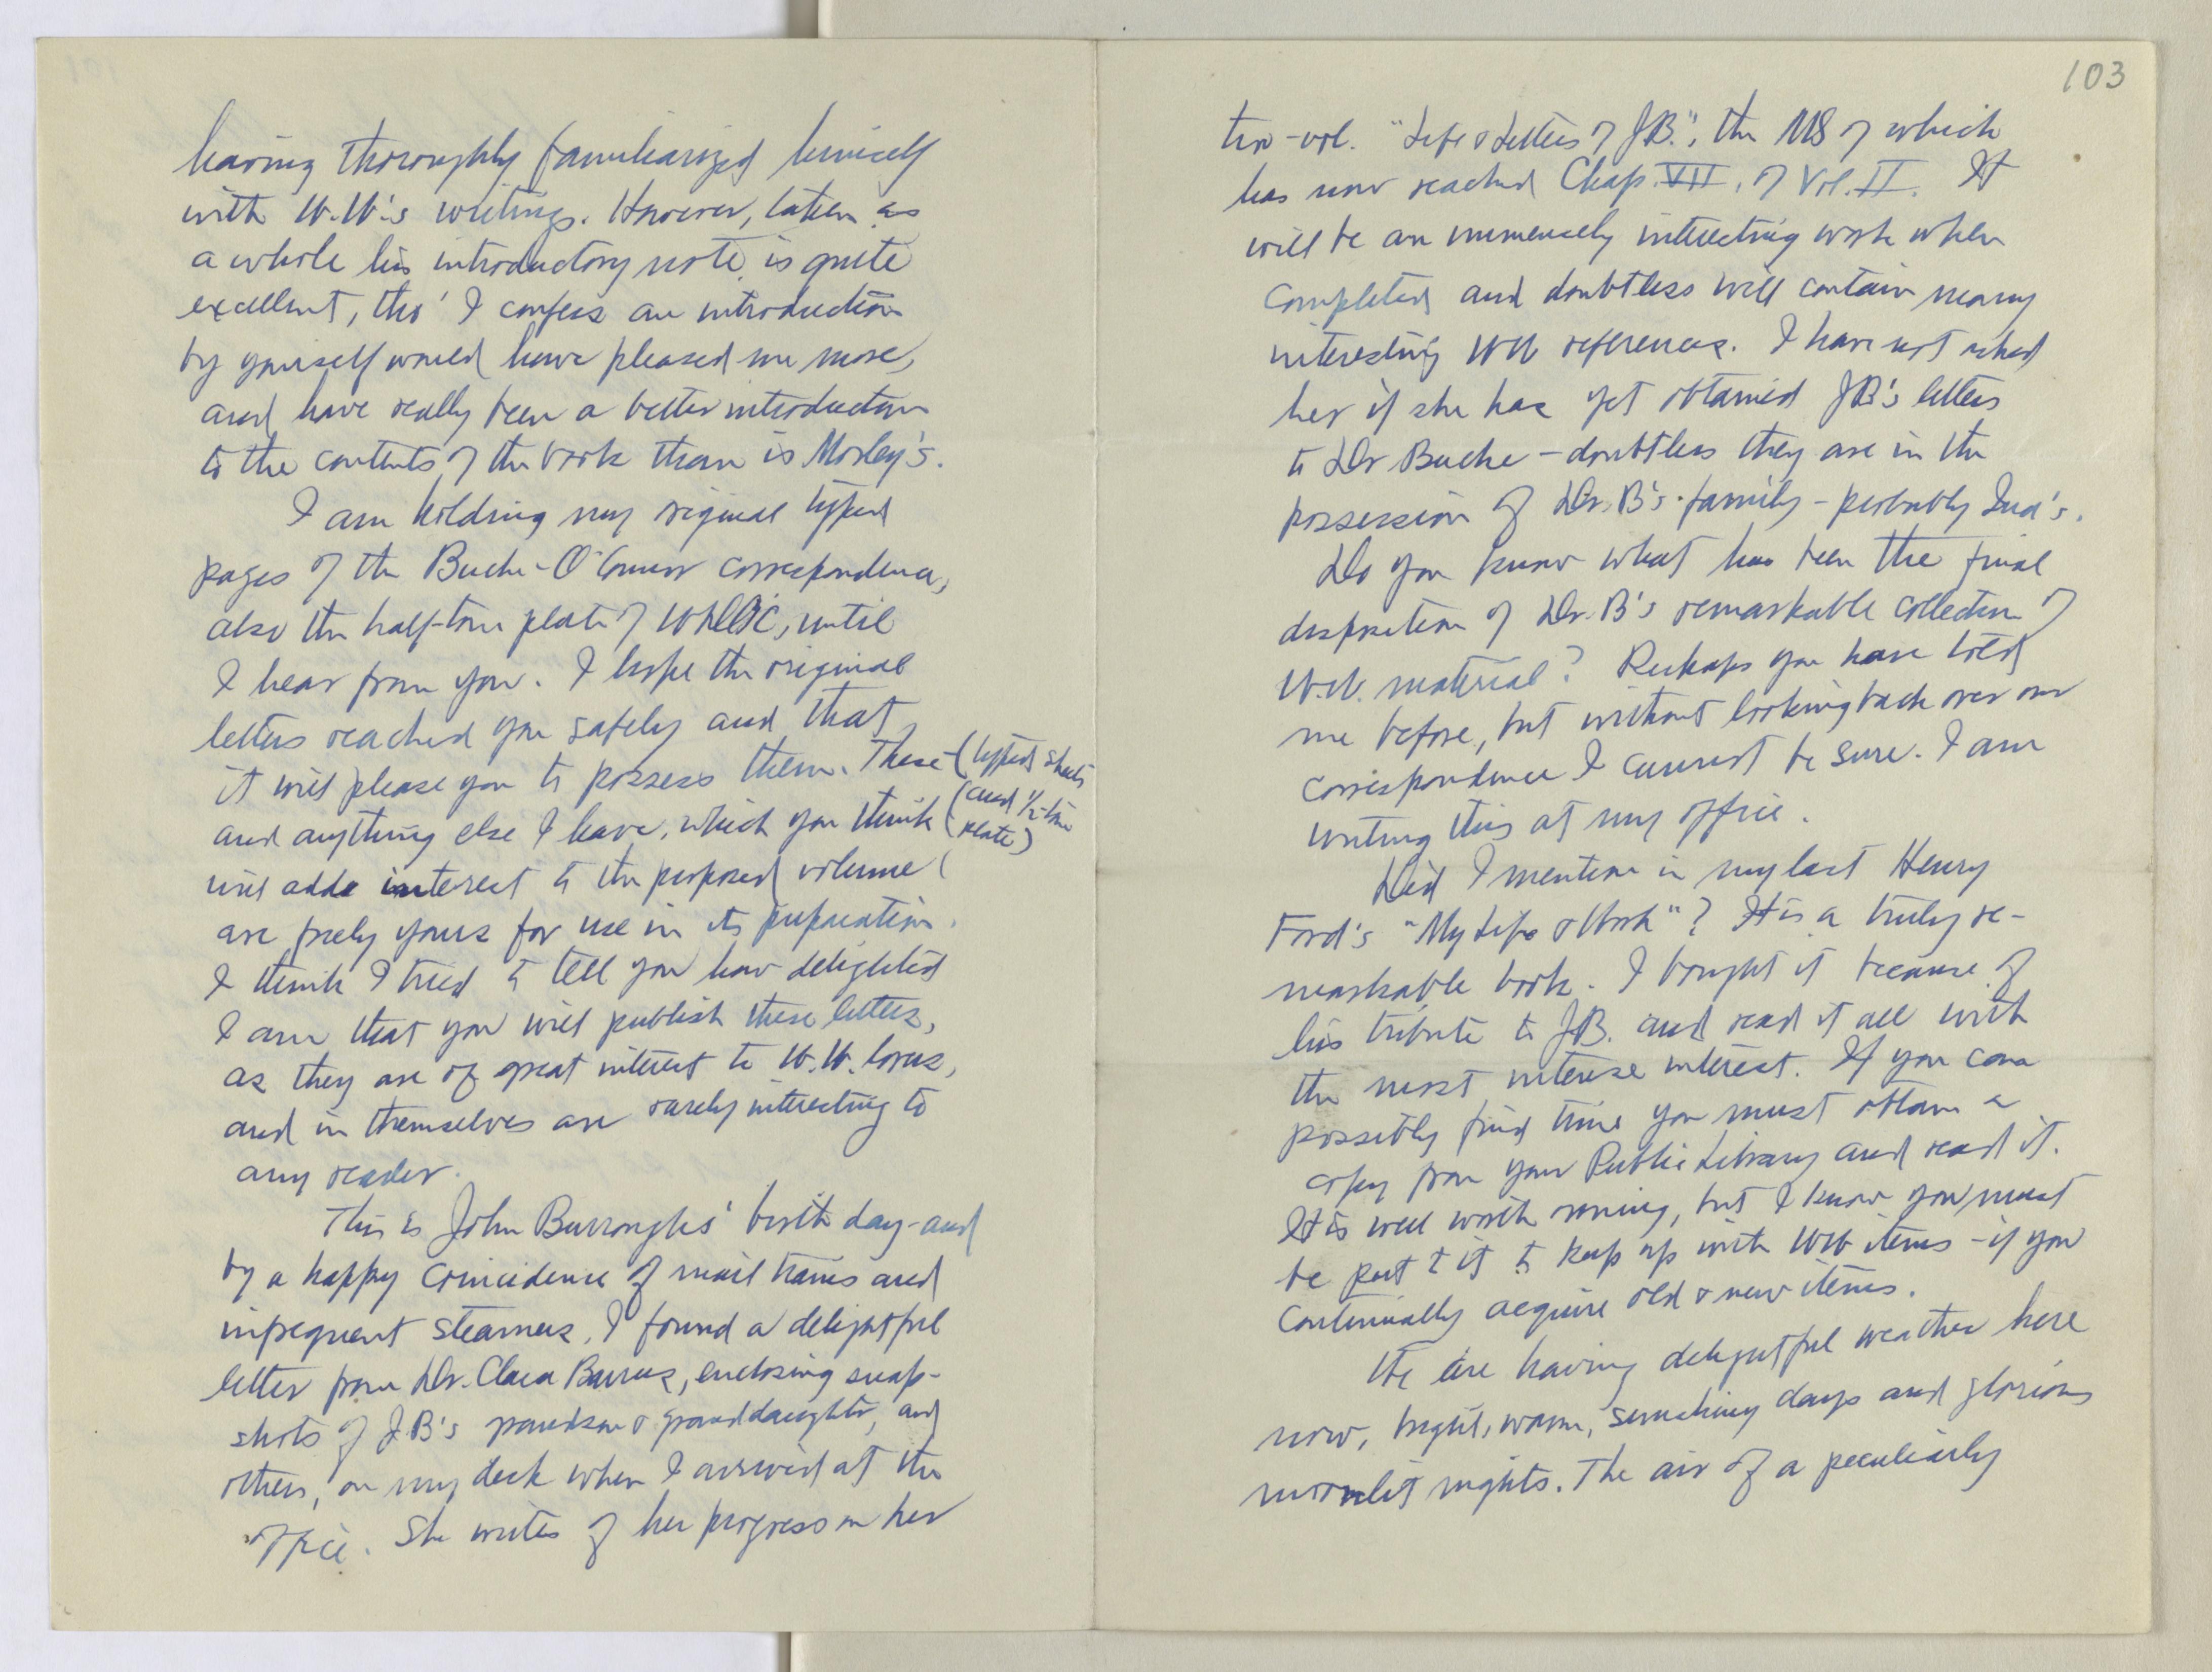 having thoroughly familiarized himself
with W.W.'s writings. However, taken as
a whole his introductory note is quite
excellent, tho' I confess an introduction
by yourself would have pleased me more,
and have really been a better introduction
to the contents of the book than is Morley's.
I am holding my original typed
pages of the Bucke-O'Connor correspondence,
also the half-tone plate of WDO'C, until
I hear from you. I hope the original
letters reached you safely and that
it will please you to possess them. These (typed sheets
and anything else I have, which you think (and ½-tone
plate)
will adde interest to the proposed volume (
are freely yours for use in its preparation.
I think I tried to tell you how delighted
I am that you will publish these letters,
as they are of great interest to W.W. lovers,
and in themselves are rarely interesting to
any reader.
This is John Burroughs' birth day - and
by a happy coincidence of mail trains and
infrequent steamers, I found a delightful
letter from Dr. Clara Barrus, enclosing snap-
shots of JB's grandson & granddaughter, and
others, on my desk when I arrived at the
office. She writes of her progress on her
103
two-vol. "Life & Letters of JB.", the MS of which
has now reached Chap. VII, of Vol. II. It
will be an immensely interesting work when
completed and doubtless will contain many
interesting WW references. I have not asked
her if she has yet obtained JB's letters
to Dr Bucke - doubtless they are in the
possession of Dr. B's family - probably Ina's.
Do you know what has been the final
disposition of Dr. B's remarkable collection of
W.W. material? Perhaps you have told
me before, but without looking back over our
correspondence I cannot be sure. I am
writing this at my office.
Did I mention in my last Henry
Ford's "My Life & Work"? It is a truly re-
markable book. I bought it because of
his tribute to JB. and read it all with
the most intense interest. If you can
possibly find time you must obtain a
copy from your Public Library and read it.
It is well worth owning, but I know you must
be put to it to keep up with WW items - if you
continually acquire old & new items.
We are having delightful weather here
now, bright, warm, sunshiny days and glorious
moonlit nights. The air of a peculiarly